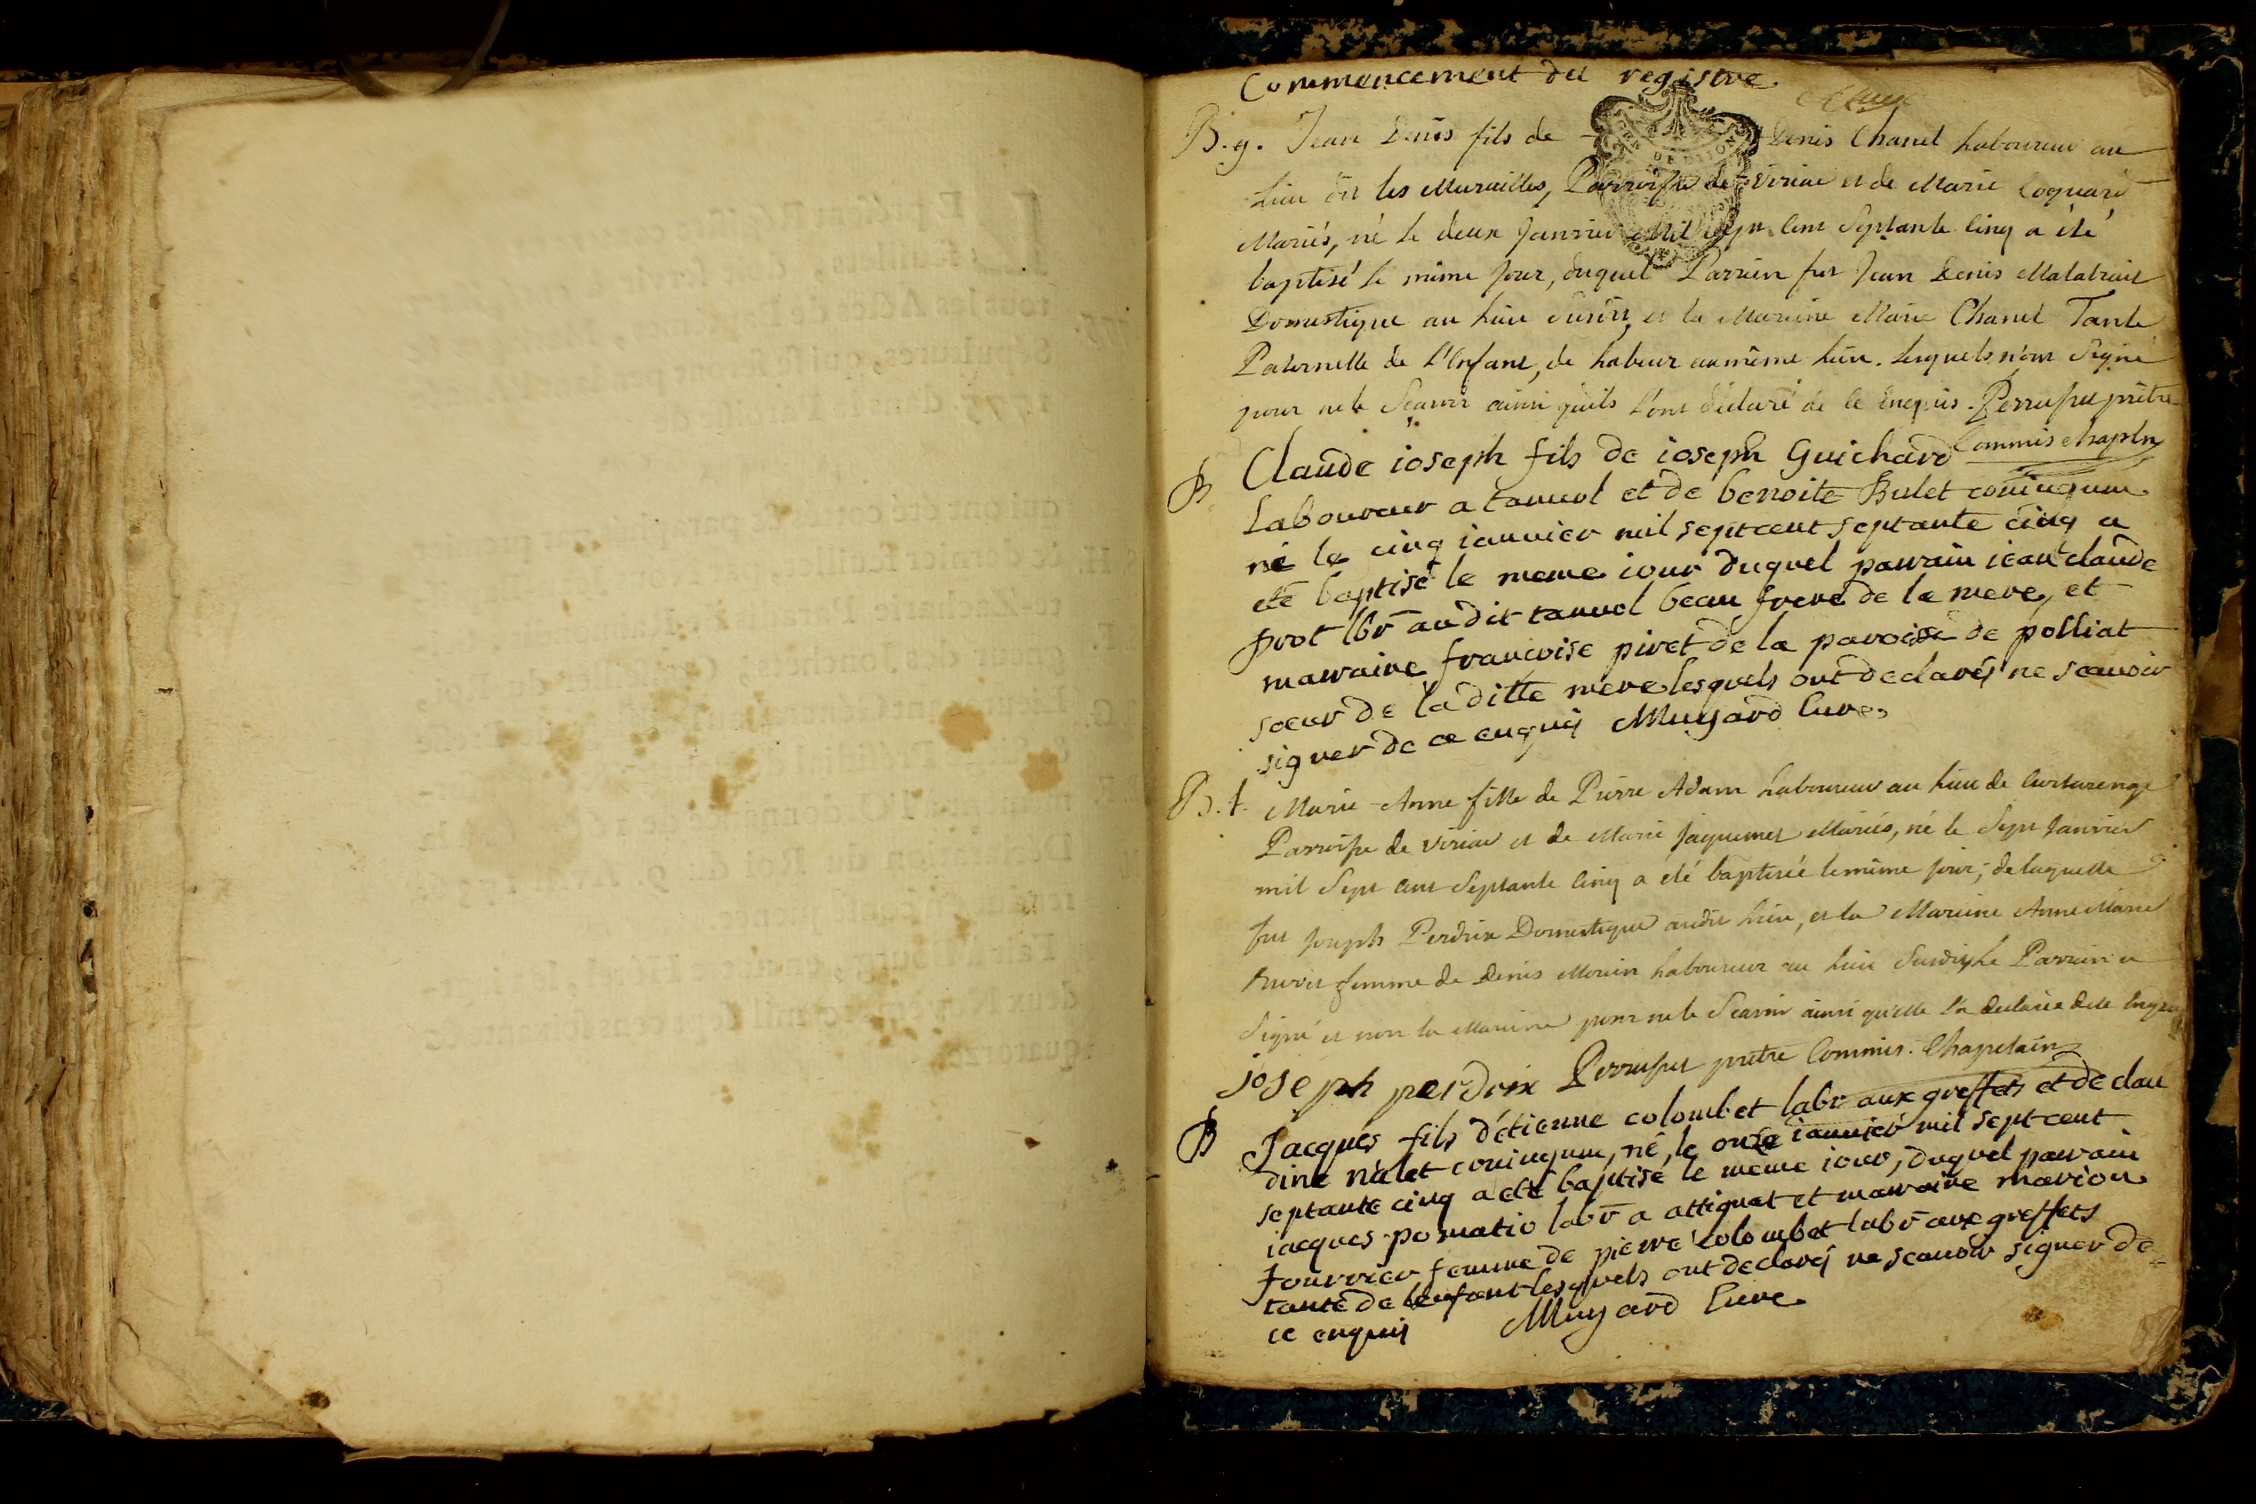 Commencement du registre
B. g. Jean Denis fils de Denis Chanel Laboureur au
Lieu dit les Murailles, Parroisse de Viriat et de Marie Coquard
Mariés, né le deux Janvier Mil Sept Cent Septante Cinq a été
baptisé le même Jour, duquel Parrien fut Jean Denis
Domestique au Lieu susdit, et la Mareine Marie Chanel Tante
Paternelle de L'Enfant, de Labeur au même Lieu. Lesquels n'ont Signé
pour ne le Scavoir ainsi qu'ils L'ont déclaré de ce Enquis. prêtre
Commis
B Claude ioseph fils de ioseph Guichard
Laboureur a tanuol et de benoite Bulet coniugum
né le cinq ianvier mil sept cent septante cinq a
eté baptisé le meme iour duquel parrain iean claude
prot lbr au dit tanuol beau frere de la mere, et
marraine francoise piret de la paroisse de polliat
soeur de la ditte mere lesquels ont declarés ne scauoir
signer de ce enquis Muyard Cure
B. f. Marie-Anne fille de Pierre Adam Laboureur au Lieu de
Parroisse de Viriat et de Marie Jaquemet Mariés, né le Sept Janvier
mil Sept Cent Septante Cinq a été baptisée le même jour; de laquelle
fut Joseph Perdrix Domestique audit Lieu, et la Mareine Anne Marie
femme de Denis Morin Laboureur au Lieu Susdit, Le Parrein a
Signé et non la Mareine pour ne le Scavoir ainsi qu'elle l'a declaré de ce
joseph perdrix prêtre Commis. Chapelain
B Jacques fils d'étienne colombet labr aux greffets et de clau
dine nalet coniugum, né, le onze ianvier mil sept cent
septante cinq a eté baptisé le meme iour, duquel parrain
iacques pomatio labr a attignat et marraine marion
fourrier femme de pierre colombet labr aux greffets
tante de lenfant lesquels ont declarés ne scauoir signer de
ce enquis Muyard Cure